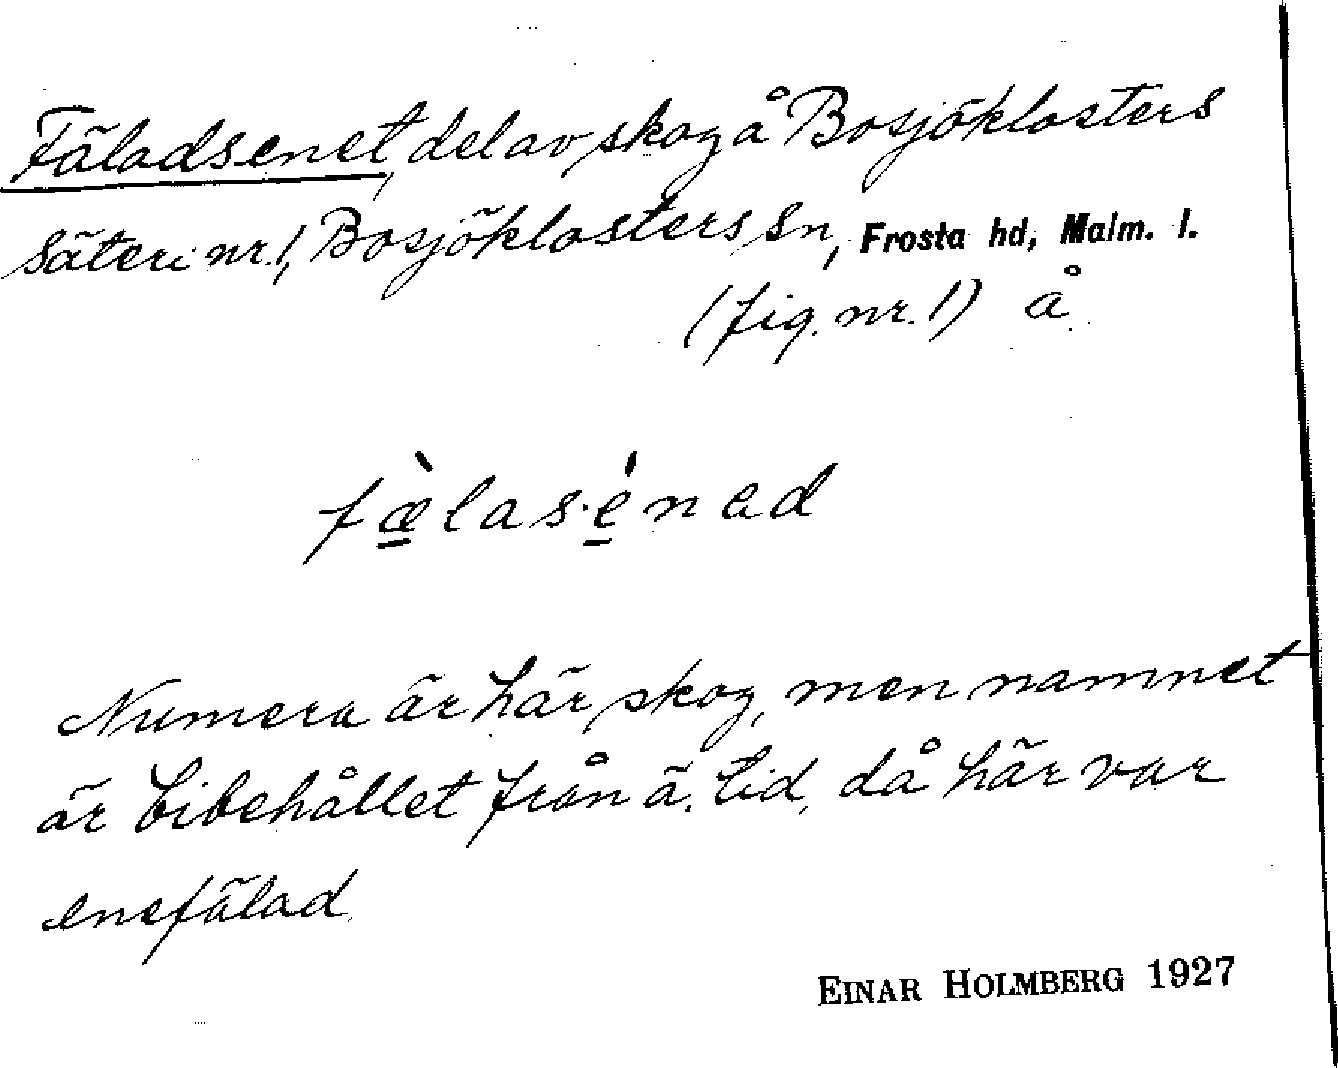 Fäladsenet, del av skog å Bosjöklosters
säteri nr. 1, Bosjöklosters sn, Frosta hd, Malm. l.
(fig. nr. 1) å.
fæ̀lasénad
Numera är här skog, men namnet
är bibehållet från ä. tid, då här var
enefälad.
EINAR HOLMBERG 1927